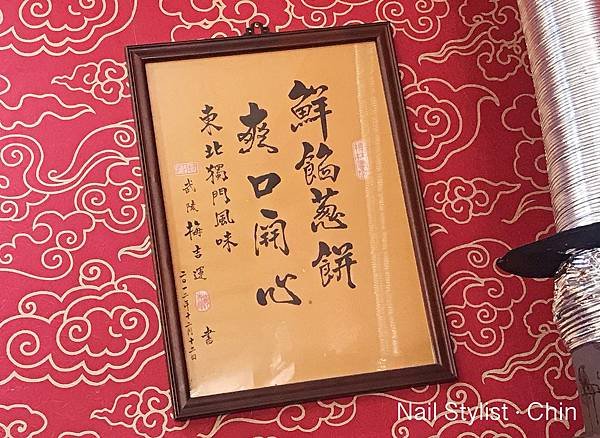 鮮餡蔥餅
爽口開心
東北獨門風味
武陵 梅吉運 書
二〇一二年十二月十二日
Nail Stylist、Chin